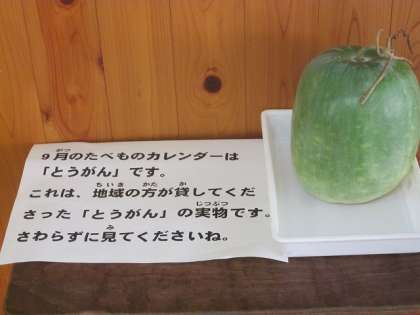 9月のたべものカレンダーは
「とうがん」です。
これは、地域の方が貸してくだ
さった「とうがん」の実物です。
さわらずに見てくださいね。